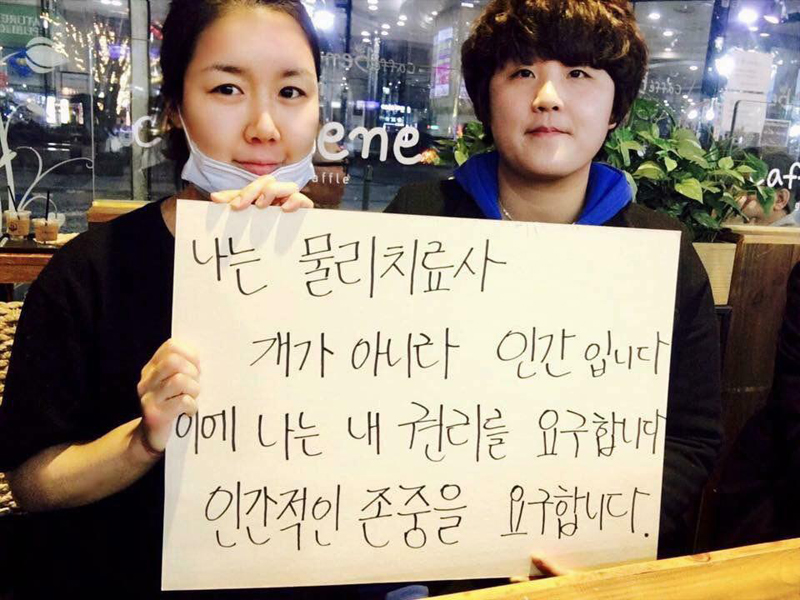 caffebene
나는 물리치료사
개가 아니라 인간입니다
이에 나는 내 권리를 요구합니다
인간적인 존중을 요구합니다.